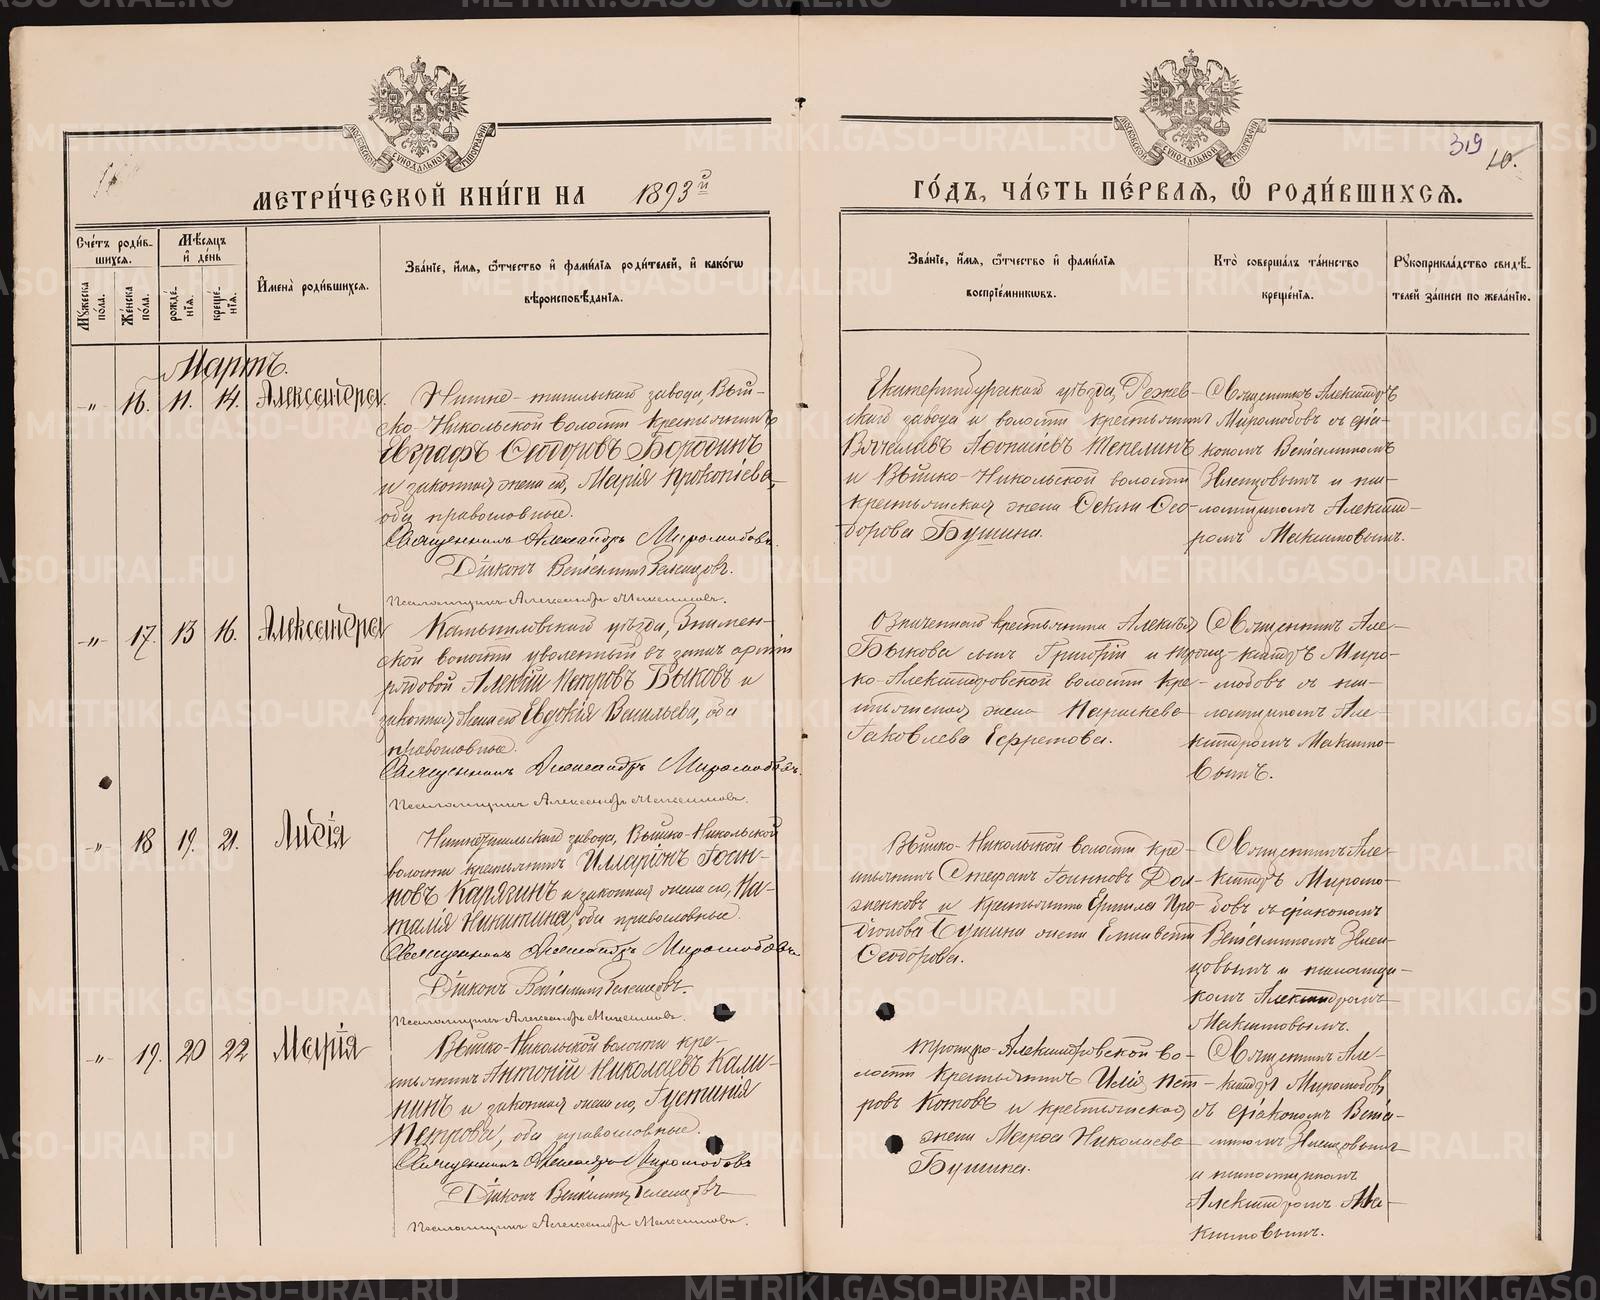 МЕТРИ́ЧЕСКОЙ КНИ́ГИ НА 1893й
ГО́ДЪ, ЧА́СТЬ ПЕ́РВАѦ, Ѡ҆ РОДИ́ВШИХСѦ.
319
10.
Сче́тъ роди́в-
шихся.
Мѣ́сяцъ
и҆ де́нь
И҆мена̀ роди́вшихся.
Зва́нїе, и҆́мя, ѻ҆́тчество и҆ фами́лїя роди́телей, и҆ како́гѡ
вѣроисповѣ́данїя.
Зва́нїе, и҆́мя, ѻ҆́тчество и҆ фами́лїя
воспрїе́мникѡвъ.
Кто̀ соверша́лъ та́инство
креще́нїя.
Рꙋкоприкла́дство свидѣ́-
телей за́писи по жела́нїю.
Мꙋ́жеска
по́ла.
Же́нска
по́ла.
рожде́-
нїя.
креще́-
нїя.
Мартъ.
-"- 16. 11. 14. Александра.
Нижне-тагильскаго завода, Вый-
ско-Никольской волости крестьянинъ
Евграфъ Ѳеодоровъ Бородинъ
и законная жена его, Марія Прокопіева,
оба православные.
Священникъ Александръ Миролюбовъ.
Діаконъ Веніаминъ
Псаломщикъ Александръ Максимовъ.
Екатеринбургскаго уѣзда, Режев-
скаго завода и волости крестьянинъ
Вячеславъ Аѳонасіевъ Тепелинъ
и Выйско-Никольской волости
крестьянская жена Ѳекла Ѳео-
дорова Бушина.
Священникъ Александръ
Миролюбовъ съ діа-
кономъ Веніаминомъ
и пса-
ломщикомъ Александ-
ромъ Максимовымъ.
-"- 17. 13 16. Александра
Камышловскаго уѣзда, Знамен-
ской волости уволенный въ запас арміи
рядовой Алексій Петровъ Быковъ и
законная жена его Евдокія Васильева, оба
православные.
Священникъ Александръ Миролюбовъ.
Псаломщикъ Александръ Максимовъ.
Означеннаго крестьянина Алексѣя
Быкова сынъ Григорій и Троиц-
ко-Александровской волости кре-
стьянская жена Параскева
Іаковлева Ефремова.
Священникъ Але-
ксандръ Миро-
любовъ съ пса-
ломщикомъ Але-
ксандромъ Максимо-
вымъ.
-"- 18 19. 21. Лидія
Нижнетагильскаго завода, Выйско-Никольской
волости крестьянинъ Иларіонъ Іоан-
новъ Карягинъ и законная жена его, На-
талія Никитина, оба православные.
Священникъ Александръ Миролюбовъ.
Діаконъ Веніаминъ
Псаломщикъ Александръ Максимовъ.
Выйско-Никольской волости кре-
стьянинъ Стефанъ Іоанновъ Дол-
женковъ и крестьянина Ермила Про-
діонова Бушина жена Елизавета
Ѳеодорова.
Священникъ Але-
ксандръ Миролю-
бовъ съ діакономъ
Веніаминомъ
и псаломщи-
комъ Александромъ
Максимовымъ.
-"- 19. 20 22 Марія
Выйско-Никольской волости кре-
стьянинъ Антоній Николаевъ Кали-
нинъ и законная жена его, Іустинія
Петрова, оба православные.
Священникъ Александръ Миролюбовъ
Діаконъ Веніаминъ
Псаломщикъ Александръ Максимовъ.
Троицко-Александровской во-
лости крестьянинъ Илія Пет-
ровъ Котовъ и крестьянская
жена Марѳа Николаева
Бушина.
Священникъ Але-
ксандръ Миролюбовъ
съ діакономъ Веніа-
миномъ
и псаломщикомъ
Александромъ Ма-
ксимовымъ.
METRIKI.GASO-URAL.RU